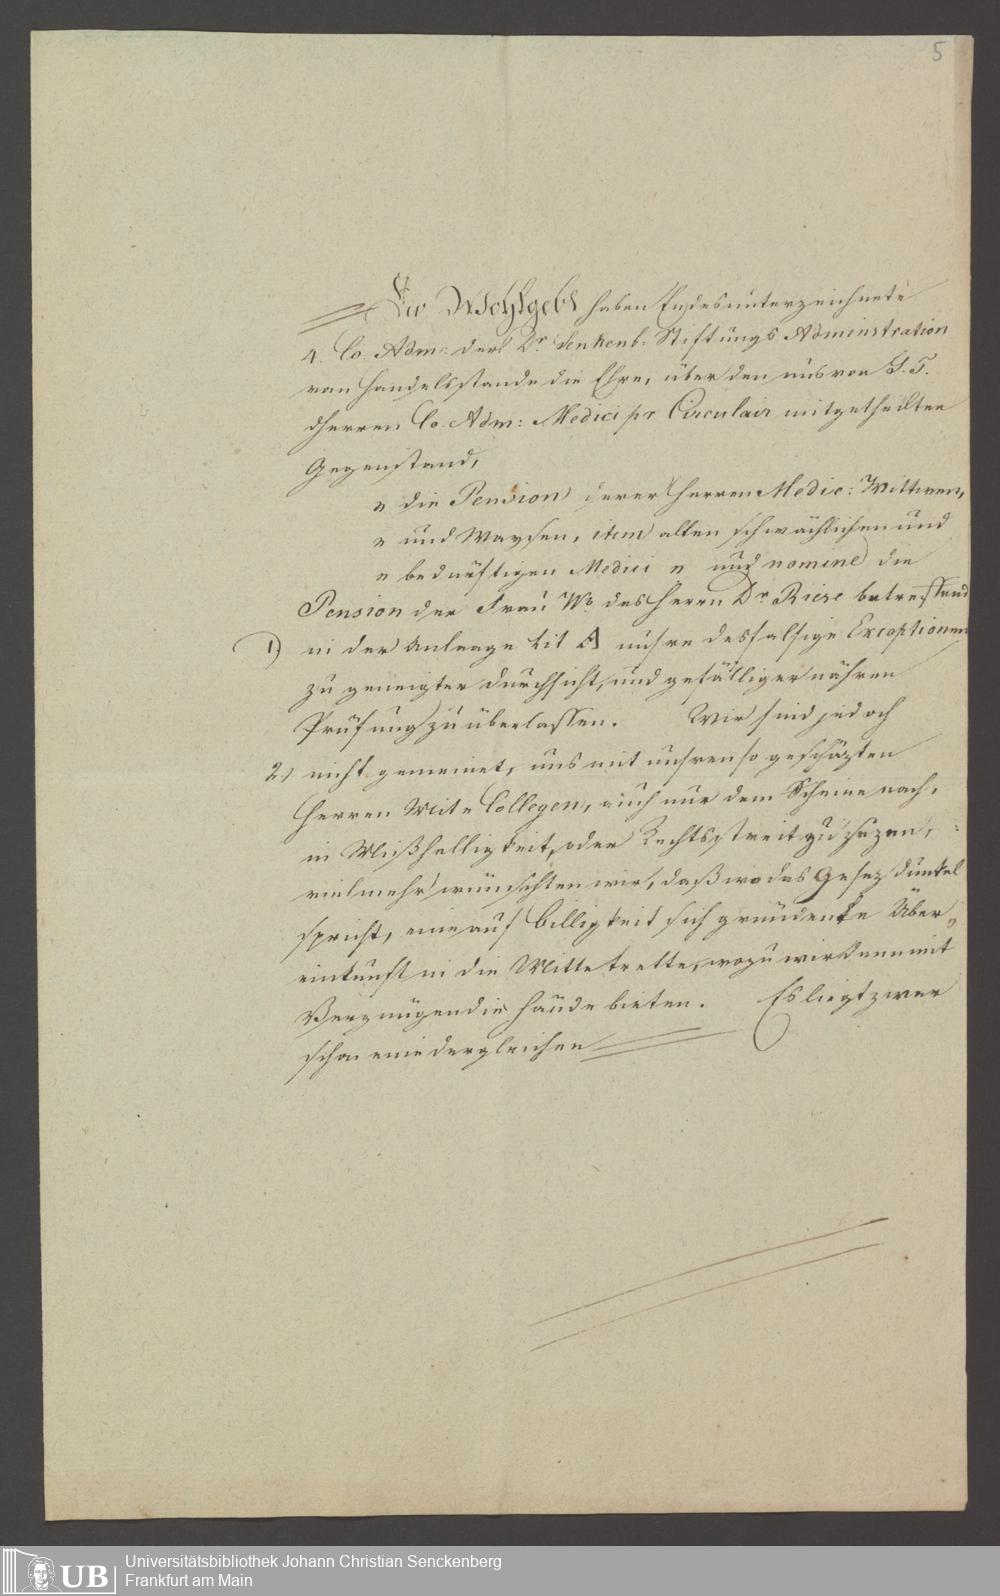 5
Ew Wohlgebl haben Endesunterzeichnete
4. Co. Adm: derl Dr. Senkenb: Stiftungs Administration
von Handelsstande die Ehre, über den uns von S. T.
dherren Co. Adm: Medici pr Circulair mitgetheilten
Gegenstand,
" die Pension derer Herren Medic: Wittwen,
" und Waysen, item alten schwächlichen und
" bedürftigen Medici " und nomine die
Pension der Frau Wb. des Herrn Dr Riese betreffend
1) in der Anleage Lit A unsre desfalsige Exceptionen
zu geneigter Durchsicht, und gefälliger nähren
Prüfung zu überlassen. Wir sind jedoch
2.) nicht gemeinet, uns mit unsren so geschäzten
Herren Mit Collegen, auch nur dem Scheine nach,
in Mißhelligkeit, oder Rechtsstreit zu sezen,
vielmehr wünschten wir, daß wo das Gesez dunkel
spricht, eine auf Billigkeit sich gründente Über
einkunft in die Mitte trette, wozu wir denn mit
Vergnügen die Hände bieten. Es liegt zwar
schon eine dergleichen
UB
Universitätsbibliothek Johann Christian Senckenberg
Frankfurt am Main